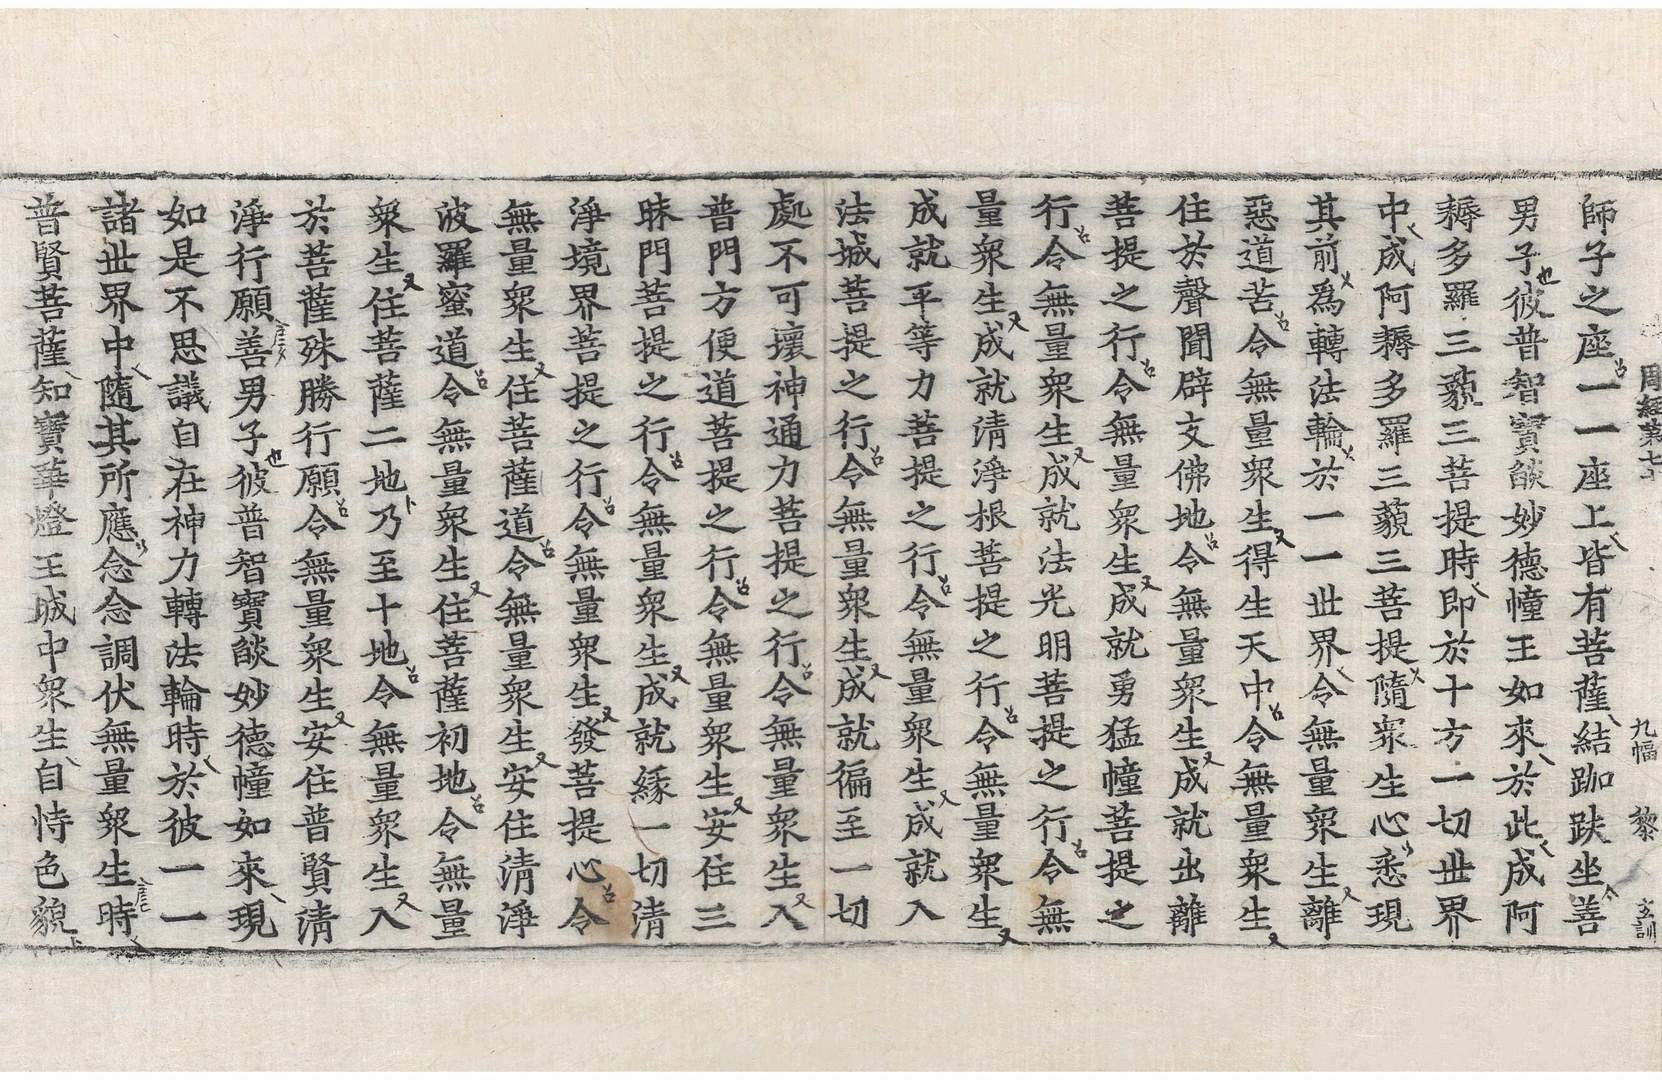 周經第七十 九幅 黎 玄訓
師子之座一一座上皆有菩薩結跏趺坐善
男子彼普智寶燄妙德幢王如來於此成阿
耨多羅三藐三菩提時即於十方一切世界
中成阿耨多羅三藐三菩提隨衆生心悉現
其前爲轉法輪於一一世界令無量衆生離
惡道苦令無量衆生得生天中令無量衆生
住於聲聞辟支佛地令無量衆生成就出離
菩提之行令無量衆生成就勇猛幢菩提之
行令無量衆生成就法光明菩提之行令無
量衆生成就清淨根菩提之行令無量衆生
成就平等力菩提之行令無量衆生成就入
法城菩提之行令無量衆生成就徧至一切
處不可壞神通力菩提之行令無量衆生入
普門方便道菩提之行令無量衆生安住三
昧門菩提之行令無量衆生成就緣一切清
淨境界菩提之行令無量衆生發菩提心令
無量衆生住菩薩道令無量衆生安住清淨
波羅蜜道令無量衆生住菩薩初地令無量
衆生住菩薩二地乃至十地令無量衆生入
於菩薩殊勝行願令無量衆生安住普賢清
淨行願善男子彼普智寶燄妙德幢如來現
如是不思議自在神力轉法輪時於彼一一
諸世界中隨其所應念念調伏無量衆生時
普賢菩薩知寶華燈王城中衆生自恃色貌